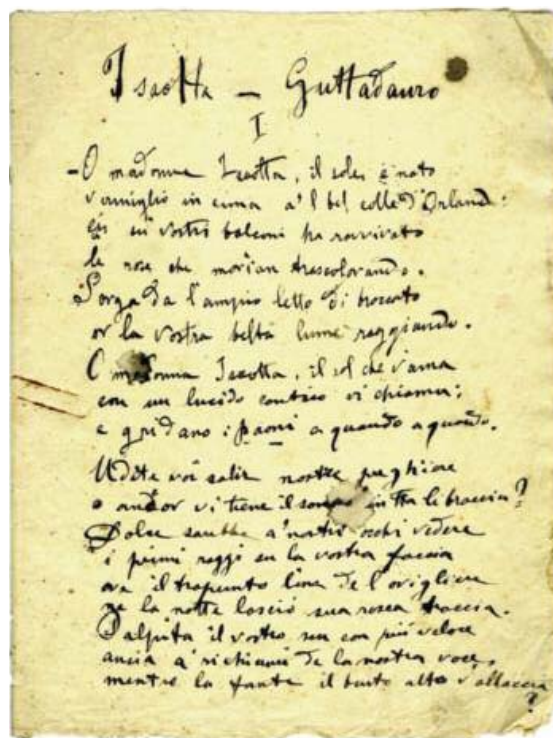 Isaotta - Guttadauro
I
- O madonna Isaotta, il sole è nato
vermiglio in cima a 'l bel colle d'Orlando:
su' vostri balconi ha ravvivato
le rose che morian trascolorando.
Sorga da l'ampio letto di broccato
or la vostra beltà lume raggiando.
O madonna Isaotta, il sol che v'ama
con un lucido cantico vi chiama;
e gridano i paoni a quando a quando.
Udite voi salir nostre preghiere
o ancor vi tiene il sonno in tra le braccia?
Dolce sarebbe a' nostri occhi vedere
i primi raggi su la vostra faccia
ove il trapunto lino de l'origliere
ne la notte lasciò sua rosea traccia.
Palpita il vostro sen con più veloce
ansia a' richiami de la nostra voce,
mentre la fante il busto alto v'allaccia
?